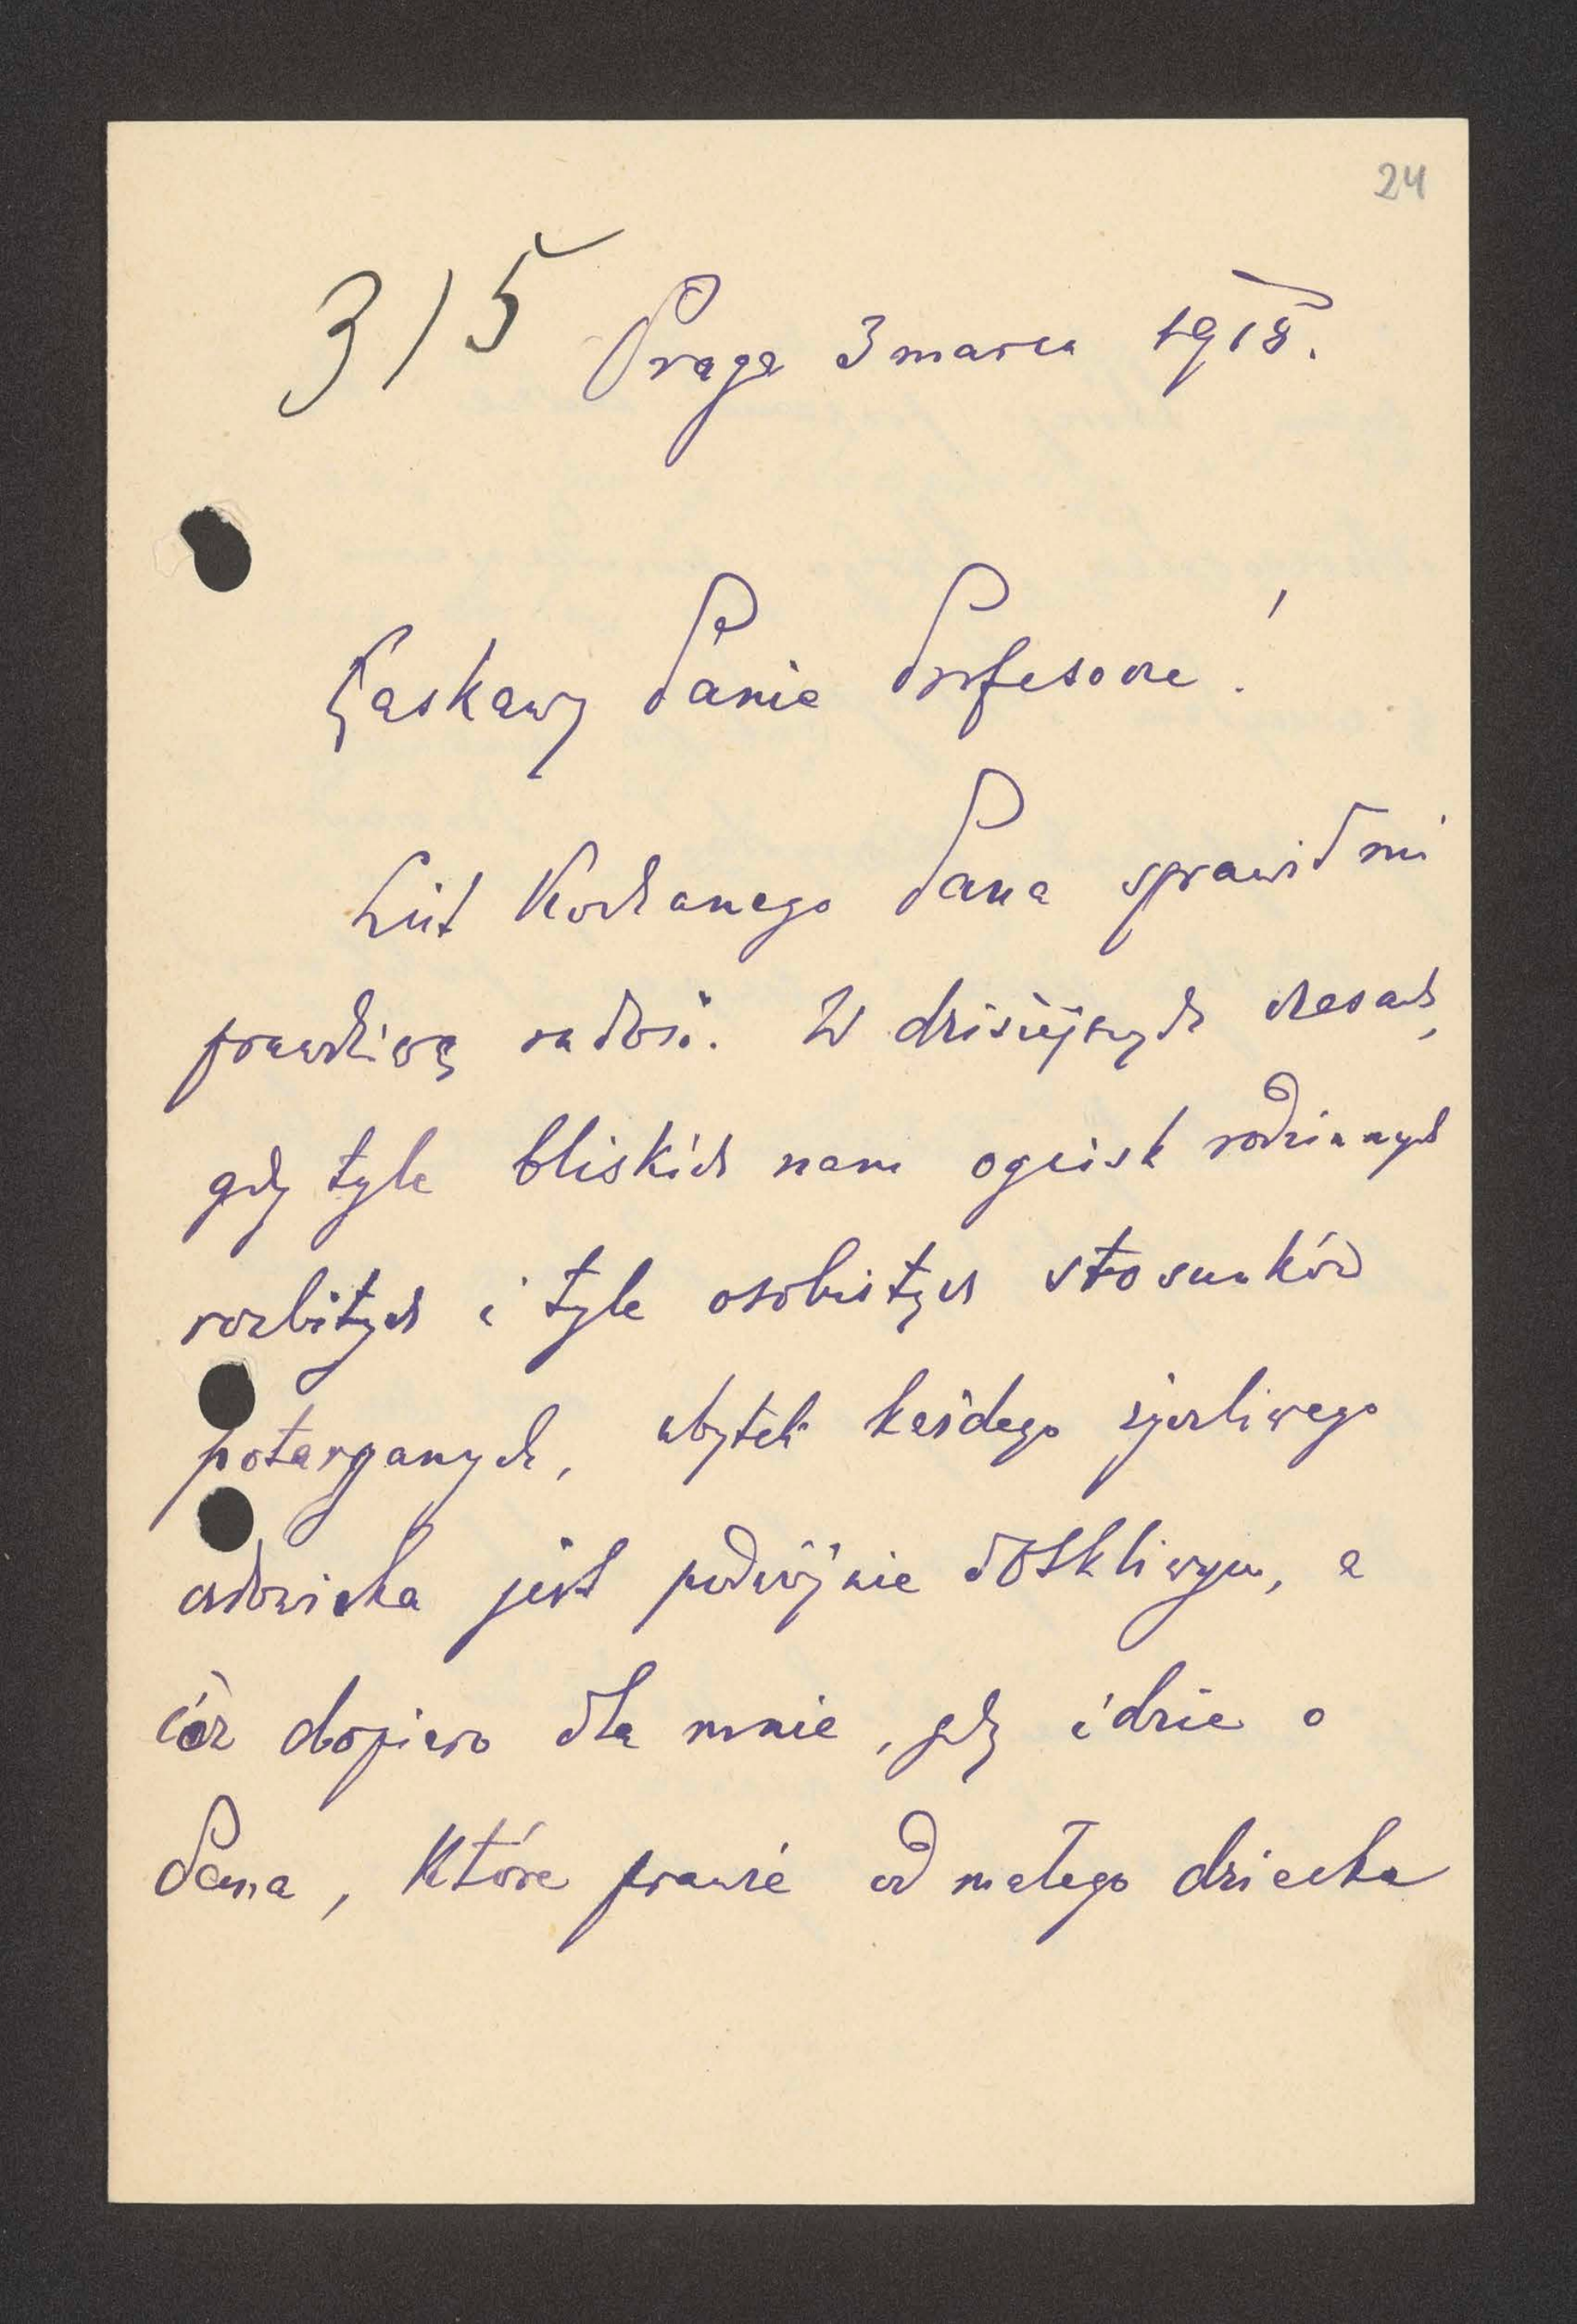 24
3/5 Praga 3 marca 1918.
Łaskawy Panie Profesorze!
List Kochanego Pana sprawił mi
prawdziwą radość. W dzisiejszych czasach,
gdy tyle bliskich nam ognisk rodzinnych
rozbitych i tyle osobistych stosunków
potarganych, ubytek każdego życzliwego
człowieka jest podwójnie dotkliwym, a
cóż dopiero dla mnie, gdy idzie o
Pana, które prawie od małego dziecka